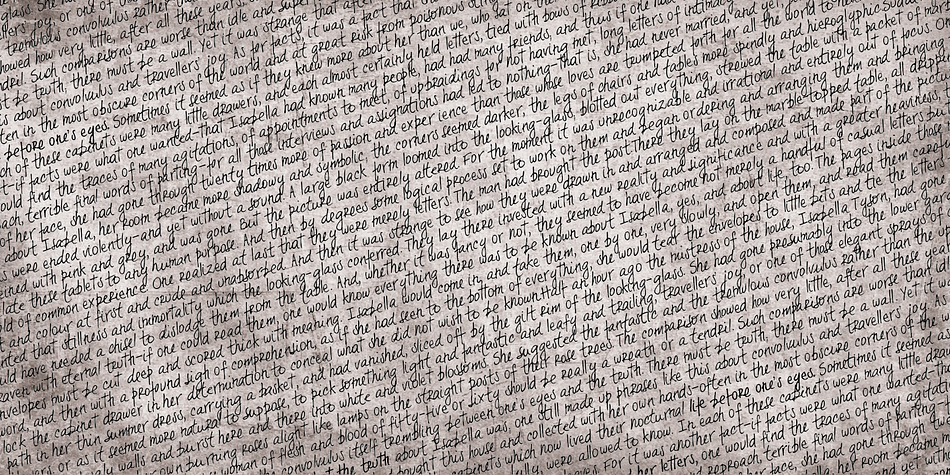 glass. She
tremulous convolvulus rather
showed how very little, after all these years
dril. Such comparisons are worse than idle and
st be truth; there must be a wall. Yet it was strange that after
s about convolvulus and travellers joy. As for facts, it was a fact that
ten in the most obscure corners of the world and at great risk from poisonous
before one's eyes. Sometimes it seemed as if they knew more about her than we, who sat on
ch of these cabinets were many little drawers, and each almost certainly held letters, tied with bows of
t-if facts were what one wanted-that Isabella had known many people, had had many friends; and thus if one
ould find the traces of many agitations, of appointments to meet, of upbraidings for not having met, long letters of intimac
ch, terrible final words of parting-for all those interviews and assignations had led to nothing-that is, she had never married, and yet
of her face, she had gone through twenty times more of passion and experience than those whose loves are trumpeted forth for all the world to hear
about Isabella, her room became more shadowy and symbolic; the corners seemed darker, the legs of chairs and tables more spindly and hieroglyphic. Suddenly
s were ended violently-and yet without a sound. A large black form loomed into the looking-glass; blotted out everything, strewed the table with a packet of mar
eined with pink and grey, and was gone. But the picture was entirely altered. For the moment it was unrecognizable and irrational and entirely out of focus.
ate these tablets to any human purpose. And then by degrees some logical process set to work on them and began ordering and arranging them and bringing
ld of common experience. One realized at last that they were merely letters. The man had brought the post.There they lay on the marble-topped table, all dripp
and colour at first and crude and unabsorbed. And then it was strange to see how they were drawn in and arranged and composed and made part of the
ted that stillness and immortality which the looking-glass conferred. They lay there invested with a new reality and significance and with a greater heaviness,
d have needed a chisel to dislodge them from the table. And, whether it was fancy or not, they seemed to have become not merely a handful of casual letters but
raven with eternal truth-if one could read them, one would know everything there was to be known about Isabella, yes, and about life, too. The pages inside those
nvelopes must be cut deep and scored thick with meaning. Isabella would come in, and take them, one by one, very slowly, and open them, and read them caref
ord, and then with a profound sigh of comprehension, as if she had seen to the bottom of everything, she would tear the envelopes to little bits and tie the letters
lock the cabinet drawer in her determination to conceal what she did not wish to be known.Half an hour ago the mistress of the house, Isabella Tyson, had gone
path in her thin summer dress, carrying a basket, and had vanished, sliced off by the gilt rim of the looking-glass. She had gone presumably into the lower gar
ers; or as it seemed more natural to suppose, to pick something light and fantastic and leafy and trailing, travellers joy, or one of those elegant sprays of
ugly walls and burst here and there into white and violet blossoms. She suggested the fantastic and the tremulous convolvulus rather than the
own burning roses alight like lamps on the straight posts of their rose trees. The comparison showed how very little, after all these years
woman of flesh and blood of fifty-five or sixty should be really a wreath or a tendril. Such comparisons are worse than
convolvulus itself trembling between one's eyes and the truth. there must be truth; there must be a wall. Yet it
the truth about Isabella was. One still made up phrases like this about convolvulus and travellers joy.
bought this house and collected with her own hands-often in the most obscure corners of the
cabinets which now lived their nocturnal life before one's eyes. Sometimes it seemed
ally, were allowed to know. In each of these cabinets were many little draw
For it was another fact-if facts were what one wanted-th
her letters, one would find the traces of many agitat
approach, terrible final words of parting
face, she had gone through
room became